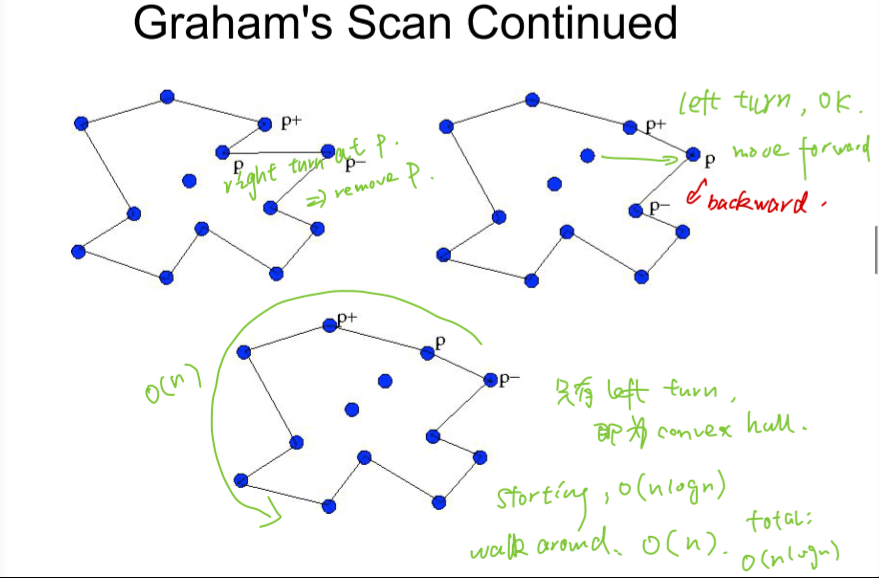 Graham's Scan Continued
p+
p
p-
right turn at p.
⇒ remove p.
left turn, OK.
p+
p
move forward
p-
backward.
p+
p
p-
O(n)
只有 left turn,
即为 convex hull.
Storting, O(nlogn)
walk around、O(n).
total:
O(nlogn)